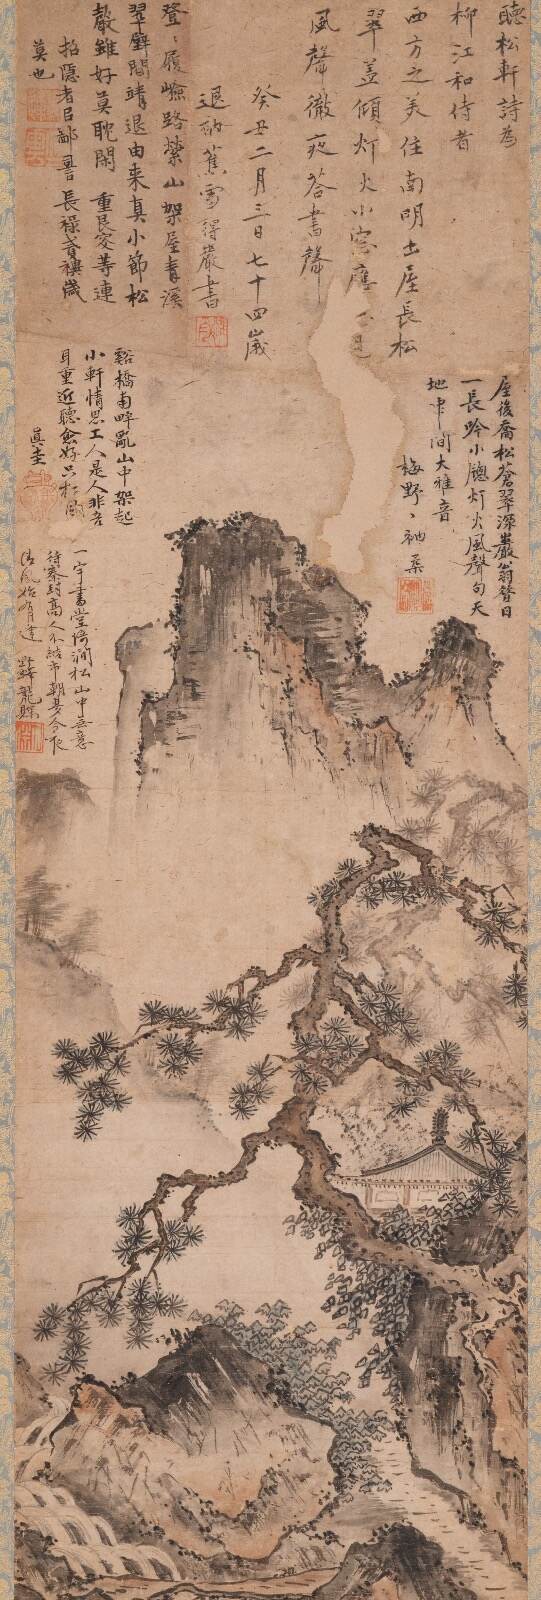 聽松軒詩為
柳江和侍者
西方之美住南明出屋長松
翠蓋傾灯火小窓應
風聲徹夜答書聲
癸丑二月三日七十四歲
退耕蕉雪得巖書
登〻履嶮路縈山架屋青溪
翠壁間靖退由来真小節松
聲雖好莫耽閑 重艮变等連
莫也
招隱者 長祿 歲
屋後喬松蒼翠深巖翁贊日
一長吟小牕灯火風聲句天
地中間大雅音
梅野〻衲
谿橋南畔亂山中架起
小軒情思工人是人非音
耳重近聽愈好只松風
真圭
一宇書堂傍澗松山中無意
待秦封高人不結市朝夢今夜
清風始有逢 野